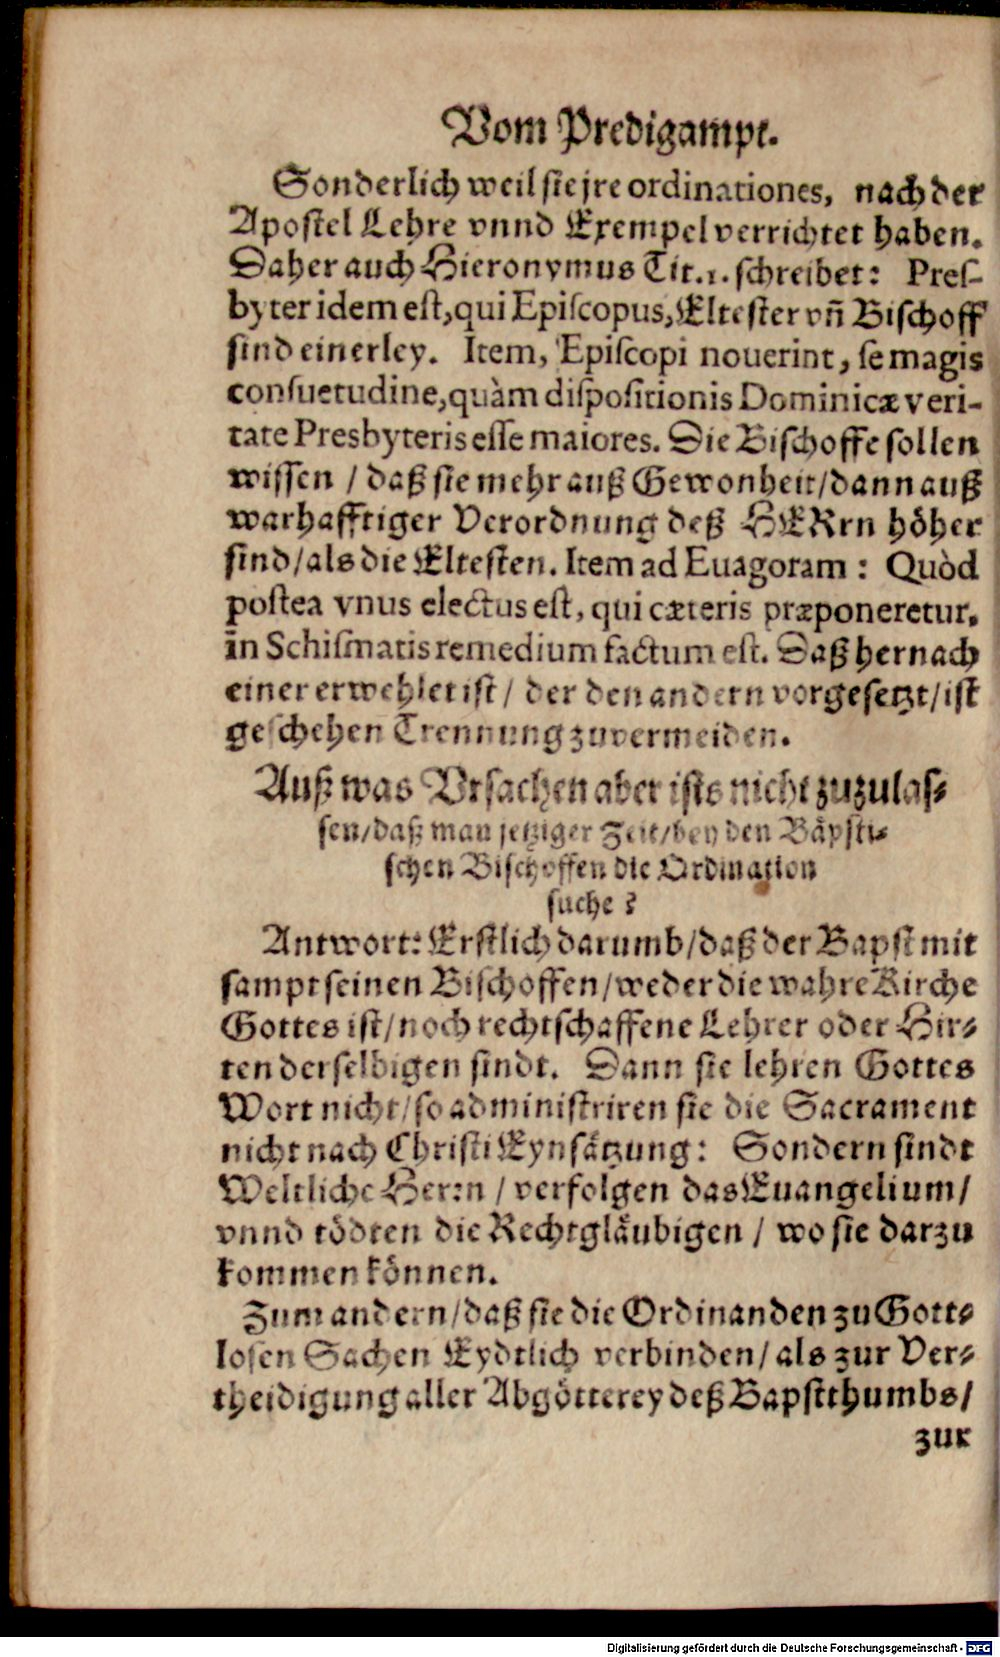 Vom Predigampt.
Sonderlich weil sie jre ordinationes, nach der
Apostel Lehre vnnd Exempel verrichtet haben.
Daher auch Hieronymus Tit. 1. schreibet: Pres-
byter idem est, qui Episcopus, Eltester vn̄ Bischoff
sind einerley. Item, Episcopi nouerint, se magis
consuetudine, quàm dispositionis Dominicæ veri-
tate Presbyteris esse maiores. Die Bischoffe sollen
wissen / daß sie mehr auß Gewonheit/dann auß
warhafftiger Verordnung deß HERrn höher
sind/als die Eltesten. Item ad Euagoram: Quòd
postea vnus electus est, qui cæteris præponeretur,
in Schismatis remedium factum est. Daß hernach
einer erwehlet ist / der den andern vorgesetzt/ist
geschehen Trennung zuvermeiden.
Auß was Vrsachen aber ists nicht zuzulas-
sen/daß man jetziger Zeit/bey den Bäpsti-
schen Bischoffen die Ordination
suche?
Antwort: Erstlich darumb/daß der Bapst mit
sampt seinen Bischoffen/weder die wahre Kirche
Gottes ist/noch rechtschaffene Lehrer oder Hir-
ten derselbigen sindt. Dann sie lehren Gottes
Wort nicht/so administriren sie die Sacrament
nicht nach Christi Eynsätzung: Sondern sindt
Weltliche Herrn / verfolgen das Euangelium/
vnnd tödten die Rechtgläubigen / wo sie darzu
kommen können.
Zum andern/daß sie die Ordinanden zu Gott-
losen Sachen Eydtlich verbinden/als zur Ver-
theidigung aller Abgötterey deß Bapstthumbs/
zur
Digitalisierung gefördert durch die Deutsche Forschungsgemeinschaft - DFG